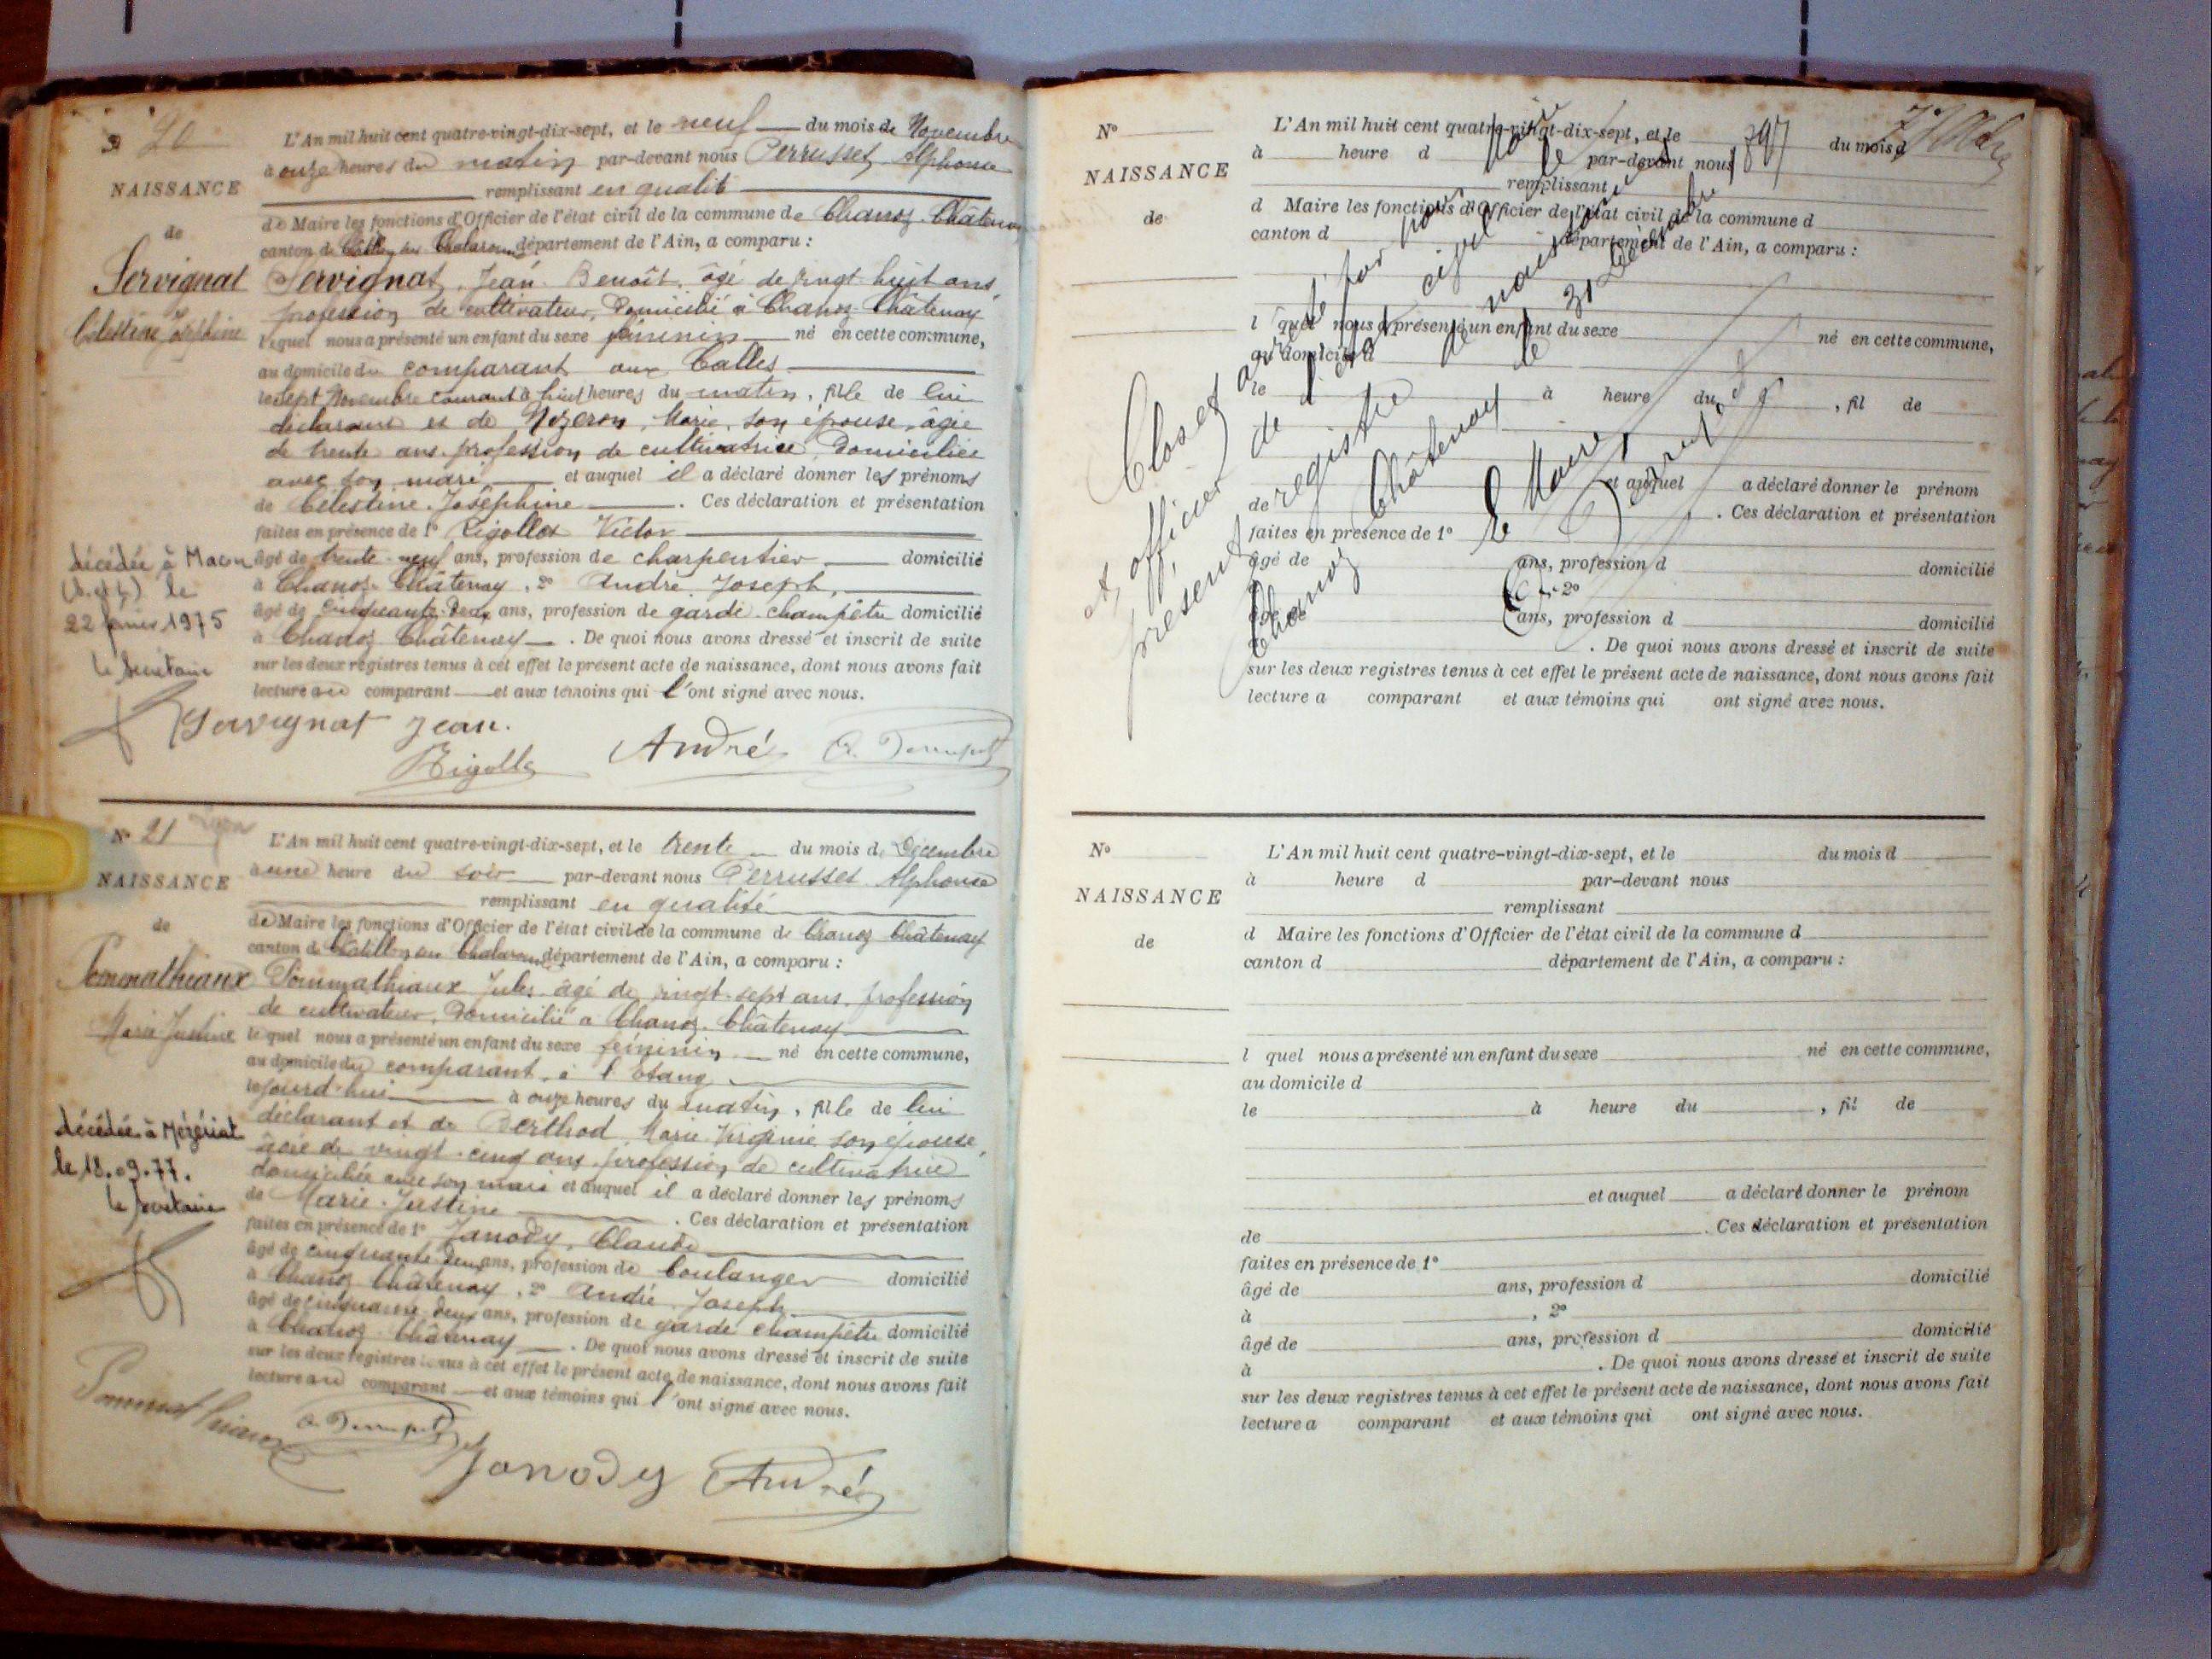 20
NAISSANCE
de
Servignat
Célestine Joséphine
décédée à Macon
(S. et L.) le
22 janvier 1975
le Secrétaire
L'An mil huit cent quatre-vingt-dix-sept, et le neuf du mois de Novembre
à onze heures du matin par-devant nous Perrusset Alphonse
remplissant en qualité
de Maire les fonctions d'Officier de l'état civil de la commune de Chanoz-Châtenay
canton de Châtillon sur Chalaronne département de l'Ain, a comparu :
Servignat, Jean Benoît, âgé de vingt huit ans,
profession de cultivateur, Domicilié à Chanoz-Châtenay
lequel nous a présenté un enfant du sexe féminin né en cette commune,
au domicile du comparant aux Calles
le sept Novembre courant à huit heures du matin, fille de lui
déclarant et de Nozeron, Marie, son épouse, âgée
de trente ans profession de cultivatrice, Domiciliée
avec son mari, et auquel il a déclaré donner les prénoms
de Célestine Joséphine. Ces déclaration et présentation
faites en présence de 1° Rigollet Victor
âgé de trente-neuf ans, profession de charpentier domicilié
à Chanoz Châtenay, 2° André Joseph,
âgé de cinquante-deux ans, profession de garde-champêtre domicilié
à Chanoz Châtenay. De quoi nous avons dressé et inscrit de suite
sur les deux registres tenus à cet effet le présent acte de naissance, dont nous avons fait
lecture au comparant et aux témoins qui l'ont signé avec nous.
Servignat Jean.
Rigollet André A. Perrusset
N° 21
NAISSANCE
de
Pommathiaux
Marie Justine
décédée à Mézériat
le 18.09.77.
le Secrétaire
L'An mil huit cent quatre-vingt-dix-sept, et le trente du mois de Décembre
à une heure du soir par-devant nous Perrusset Alphonse
remplissant en qualité
de Maire les fonctions d'Officier de l'état civil de la commune de Chanoz Châtenay
canton de Châtillon sur Chalaronne département de l'Ain, a comparu :
Pommathiaux Jules âgé de vingt-sept ans, profession
de cultivateur, Domicilié à Chanoz-Châtenay
lequel nous a présenté un enfant du sexe féminin né en cette commune,
au domicile du comparant, à l'Etang
le jourd'hui à onze heures du matin, fille de lui
déclarant et de Berthod, Marie Virginie son épouse,
âgée de vingt-cinq ans profession de cultivatrice
domiciliée avec son mari et auquel il a déclaré donner les prénoms
de Marie-Justine. Ces déclaration et présentation
faites en présence de 1° Janody, Claude
âgé de cinquante-deux ans, profession de boulanger domicilié
à Chanoz Châtenay, 2° André, Joseph
âgé de cinquante-deux ans, profession de garde champêtre domicilié
à Chanoz Châtenay. De quoi nous avons dressé et inscrit de suite
sur les deux registres tenus à cet effet le présent acte de naissance, dont nous avons fait
lecture au comparant et aux témoins qui l'ont signé avec nous.
Pommathiaux A. Perrusset
Janody André
N°
NAISSANCE
de
L'An mil huit cent quatre-vingt-dix-sept, et le du mois d
à heure d par-devant nous
remplissant
d Maire les fonctions d'Officier de l'état civil de la commune d
canton d département de l'Ain, a comparu :
l quel nous a présenté un enfant du sexe né en cette commune,
au domicile d
le à heure du , fil de
et auquel a déclaré donner le prénom
de . Ces déclaration et présentation
faites en présence de 1°
âgé de ans, profession d domicilié
à , 2°
âgé de ans, profession d domicilié
à . De quoi nous avons dressé et inscrit de suite
sur les deux registres tenus à cet effet le présent acte de naissance, dont nous avons fait
lecture a comparant et aux témoins qui ont signé avec nous.
Clos et arrêté par nous Maire
et officier de l'état civil le
présent registre de naissances
Chanoz Châtenay le 31 Décembre 1897
Le Maire,
A. Perrusset
N°
NAISSANCE
de
L'An mil huit cent quatre-vingt-dix-sept, et le du mois d
à heure d par-devant nous
remplissant
d Maire les fonctions d'Officier de l'état civil de la commune d
canton d département de l'Ain, a comparu :
l quel nous a présenté un enfant du sexe né en cette commune,
au domicile d
le à heure du , fil de
et auquel a déclaré donner le prénom
de . Ces déclaration et présentation
faites en présence de 1°
âgé de ans, profession d domicilié
à , 2°
âgé de ans, profession d domicilié
à . De quoi nous avons dressé et inscrit de suite
sur les deux registres tenus à cet effet le présent acte de naissance, dont nous avons fait
lecture a comparant et aux témoins qui ont signé avec nous.